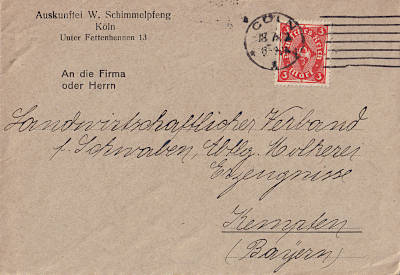 Auskunftei W. Schimmelpfeng
Köln
Unter Fettenhennen 13
An die Firma
oder Herrn
CÖLN
1
Deutsches Reich
3 Mark 3
Landwirtschaftlicher Verband
f. Schwaben, Abtlg. Molkerei
Erzeugnisse
Kempten
(Bayern)